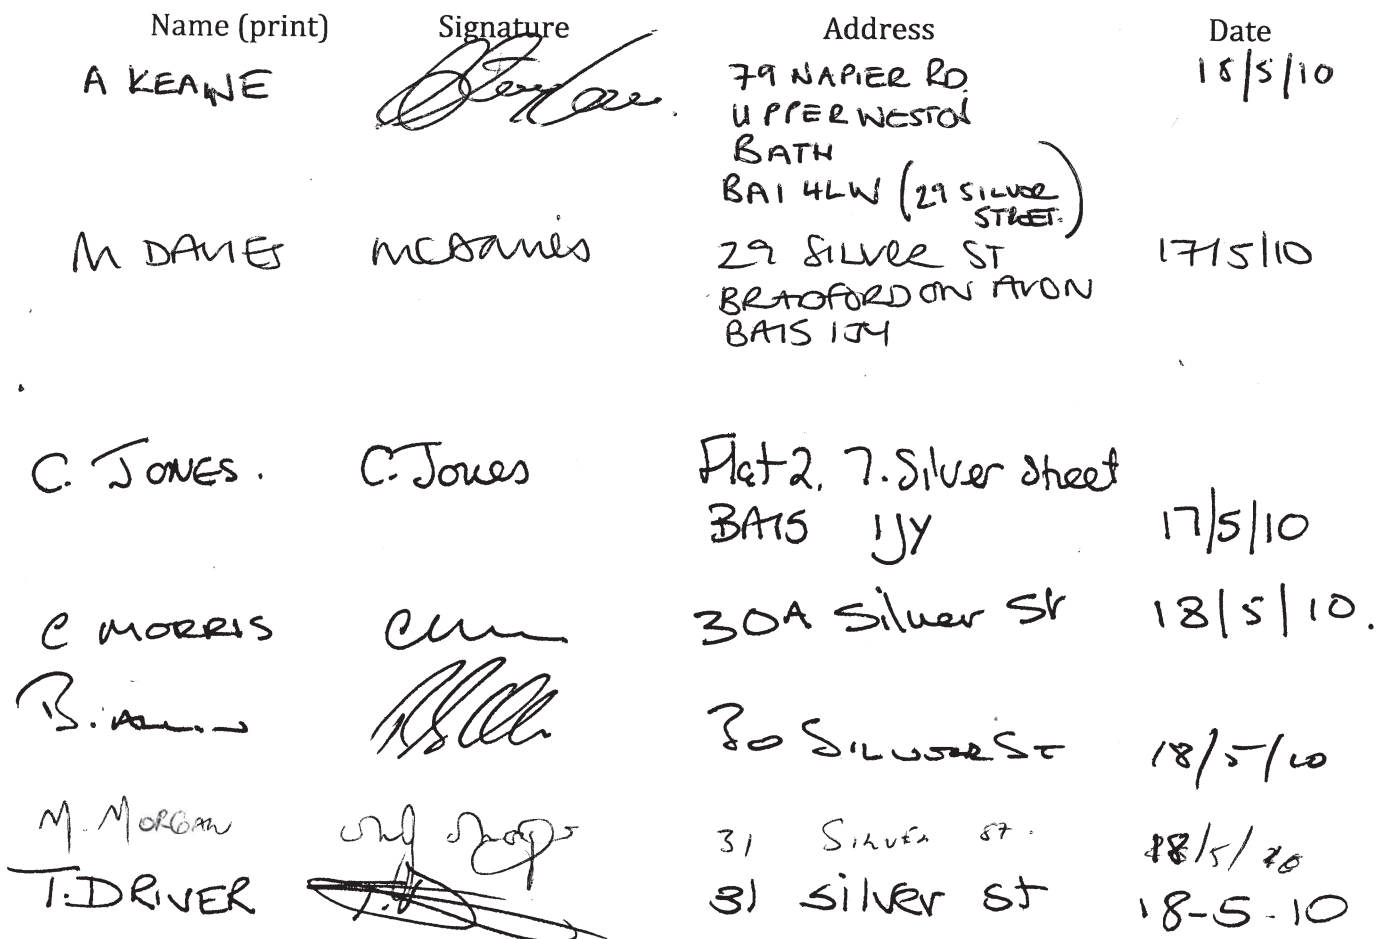 Name (print) Signature Address Date
A KEANE 79 NAPIER RD 18/5/10
UPPER WESTON
BATH
BA1 4LW (29 SILVER
STREET.)
M DAVIES MCDavies 29 SILVER ST 17/5/10
BRADFORD ON AVON
BA15 1JY
C. JONES. C. Jones Flat 2, 7. Silver Street
BA15 1JY 17/5/10
C MORRIS 30A Silver St 18/5/10.
B. 30 SILVER ST 18/5/10
M. MORGAN 31 Silver St. 18/5/10
T. DRIVER 31 Silver St 18-5-10